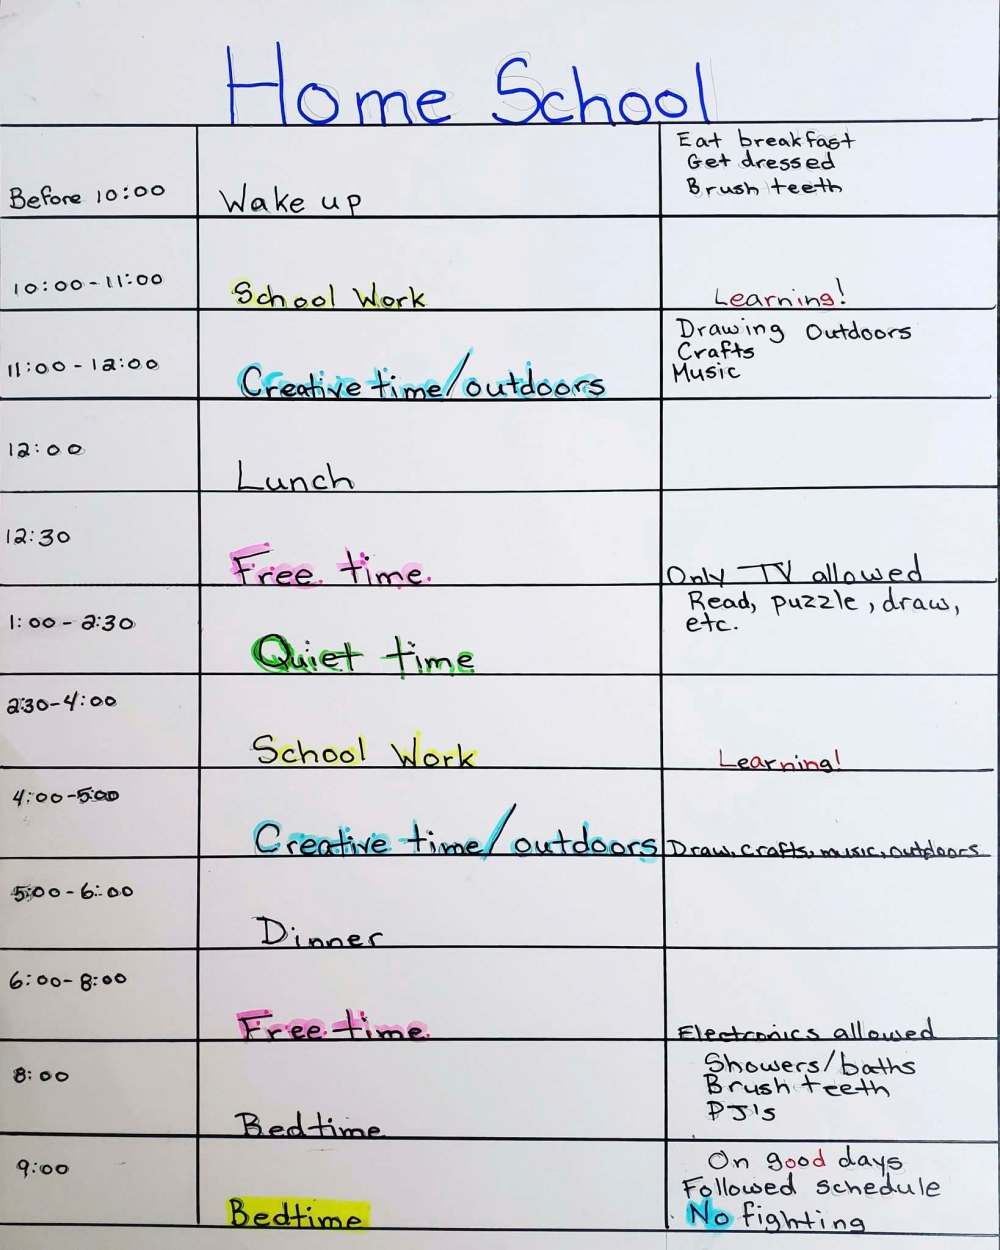 Home School
Before 10:00
Wake up
Eat breakfast
Get dressed
Brush teeth
10:00-11:00
School Work
Learning!
11:00-12:00
Creative time/outdoors
Drawing Outdoors
Crafts
Music
12:00
Lunch
12:30
Free time.
Only TV allowed
1:00-2:30
Quiet time
Read, puzzle, draw,
etc.
2:30-4:00
School Work
Learning!
4:00-5:00
Creative time/outdoors
Draw, crafts, music, outdoors
5:00-6:00
Dinner
6:00-8:00
Free time.
Electronics allowed
8:00
Bedtime
Showers/baths
Brush teeth
PJ's
9:00
Bedtime
On good days
Followed schedule
No fighting